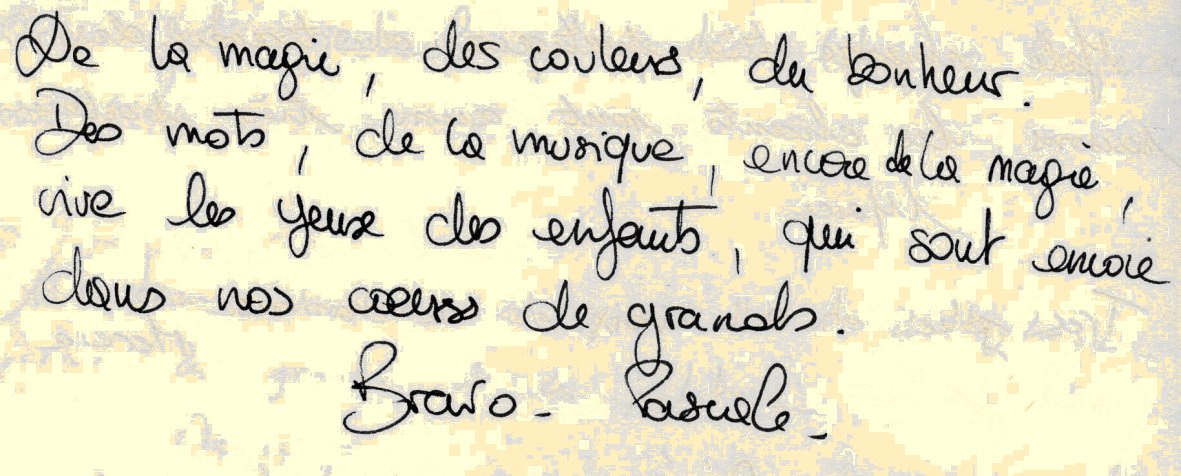 De la magie, des couleurs, du bonheur.
Des mots, de la musique, encore de la magie,
vive les yeux des enfants, qui sont encore
dans nos coeurs de grands.
Bravo - Pascale -